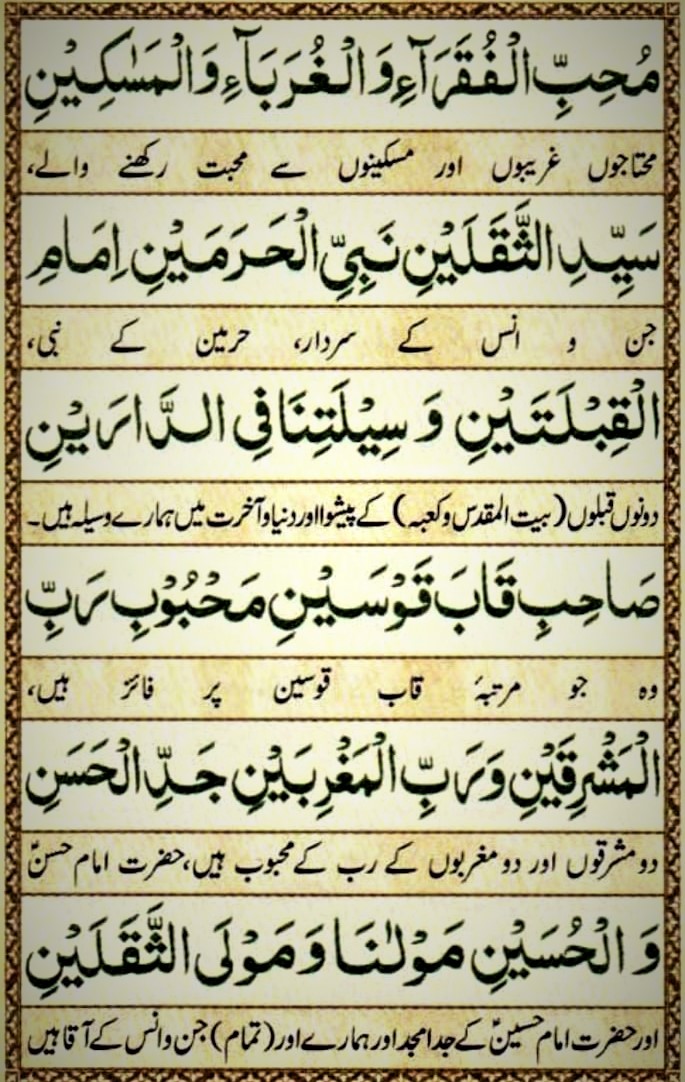 مُحِبِّ الْفُقَرَآءِ وَ الْغُرَبَآءِ وَ الْمَسٰكِيْنِ
محتاجوں غریبوں اور مسکینوں سے محبت رکھنے والے،
سَيِّدِ الثَّقَلَيْنِ نَبِيِّ الْحَرَمَيْنِ اِمَامِ
جن و انس کے سردار، حرمین کے نبی،
الْقِبْلَتَيْنِ وَ سِيْلَتِنَا فِي الدَّارَيْنِ
دونوں قبلوں (بیت المقدس و کعبہ) کے پیشوا اور دنیا و آخرت میں ہمارے وسیلہ ہیں۔
صَاحِبِ قَابَ قَوْسَيْنِ مَحْبُوْبِ رَبِّ
وہ جو مرتبۂ قاب قوسین پر فائز ہیں،
الْمَشْرِقَيْنِ وَ رَبِّ الْمَغْرِبَيْنِ جَدِّ الْحَسَنِ
دو مشرقوں اور دو مغربوں کے رب کے محبوب ہیں، حضرت امام حسنؓ
وَ الْحُسَيْنِ مَوْلٰنَا وَ مَوْلَى الثَّقَلَيْنِ
اور حضرت امام حسینؓ کے جد امجد اور ہمارے اور (تمام) جن و انس کے آقا ہیں